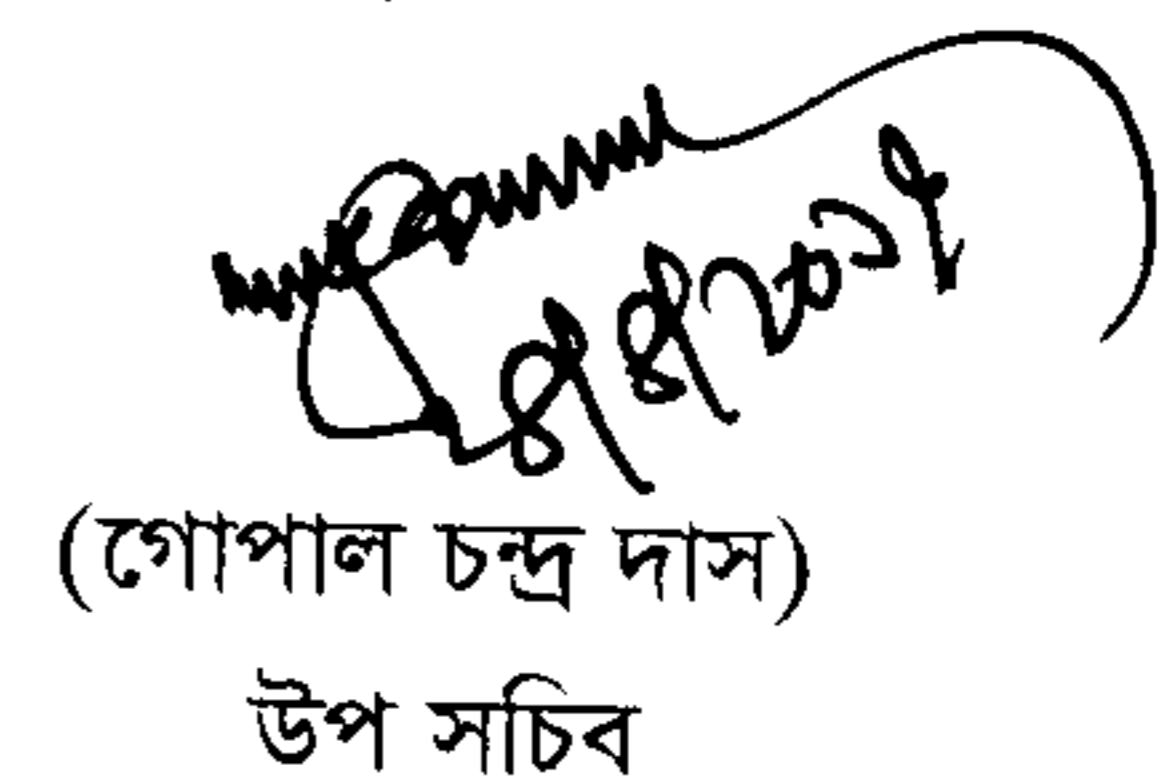 (গোপাল চন্দ্র দাস)
উপ সচিব